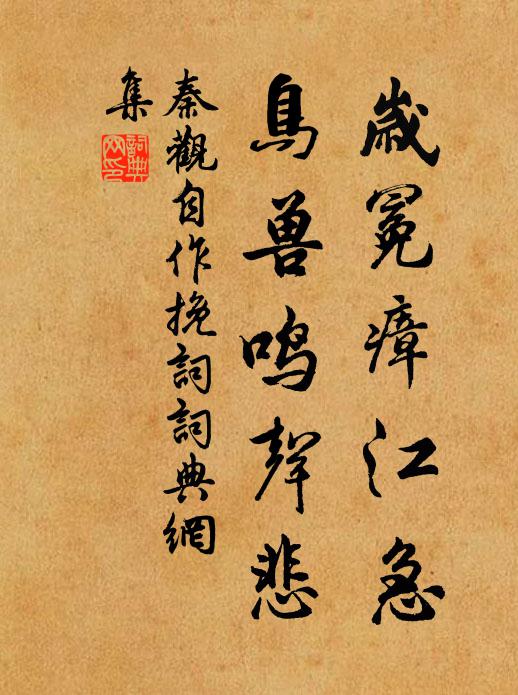 歲冕瘴江急
鳥兽鳴聲悲
秦觀自作挽詞詞典網
集
詞典
网印